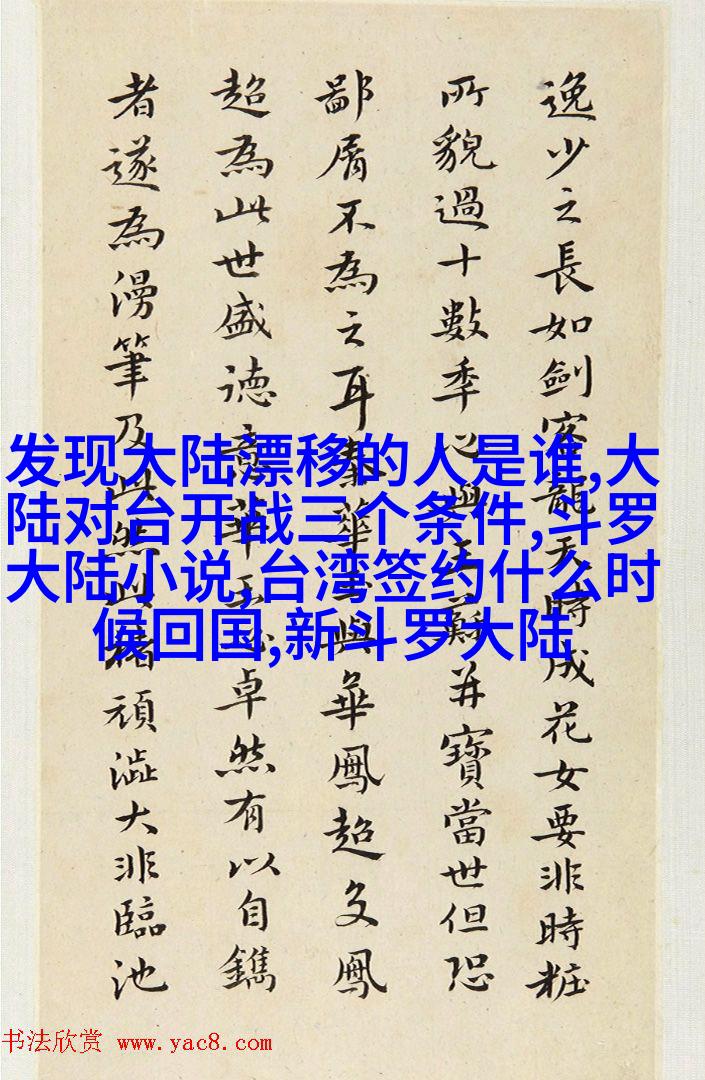 逸少之長如劍龍天時成花女要非時粧
所貌過十數季心與王蘇并寶當世但恐
鄙屑不為之耳華與華鳳超文鳳
超為此世盛德華玉卓然有以自鐫
者遂為漫筆及此然頑澁大非臨池
发现大陆漂移的人是谁,大
陆对台开战三个条件,斗罗
大陆小说,台湾签约什么时
候回国,新斗罗大陆
书法欣赏 www.yac8.com